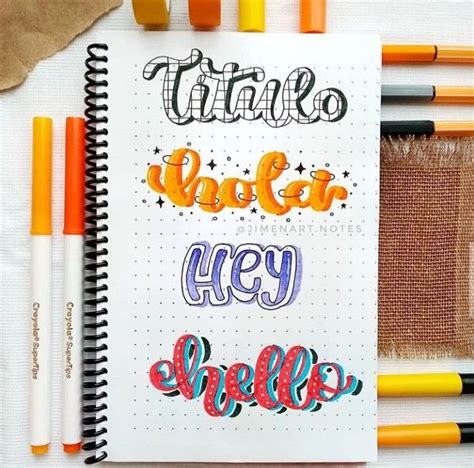 Título
hola
@JIMENART.NOTES
Hey
hello
Crayola® SuperTips
Crayola® SuperTips